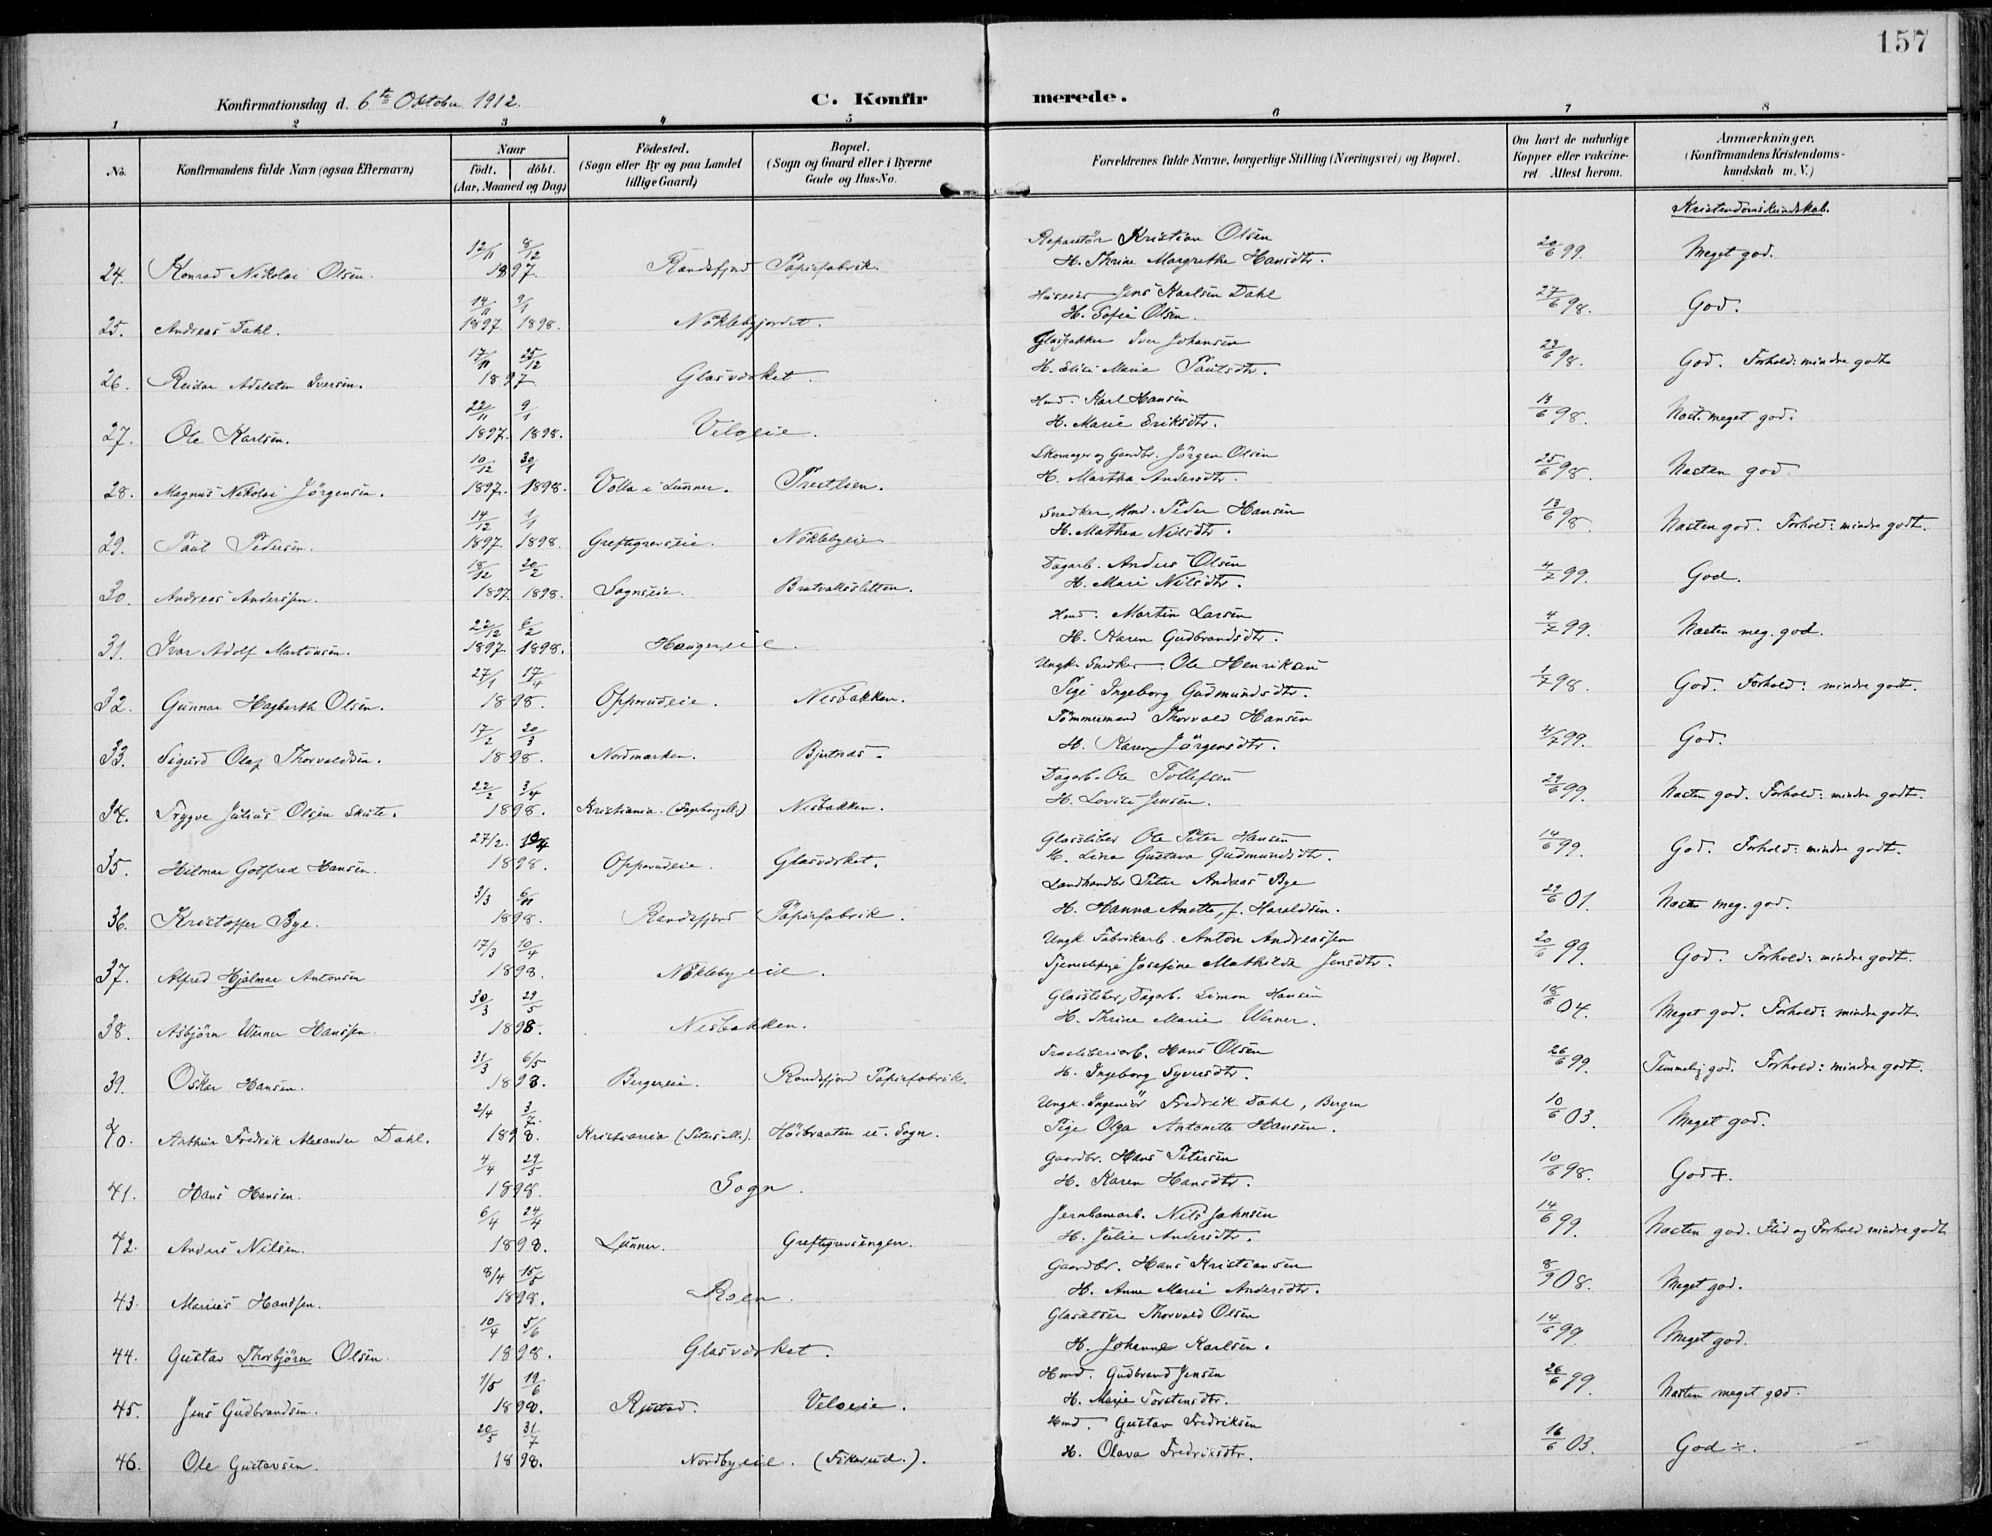 157
Konfirmationsdag d. 6te Oktober 1912.
C. Konfirmerede.
1 2 3 4 5 6 7 8
No.
Konfirmandens fulde Navn (ogsaa Efternavn)
Naar
født. døbt.
(Aar, Maaned og Dag)
Födested.
(Sogn eller By og paa Landet
tillige Gaard)
Bopæl.
(Sogn og Gaard eller i Byerne
Gade og Hus-No.
Forældrenes fulde Navne, borgerlige Stilling (Næringsvei) og Bopæl.
Om havt de naturlige
Kopper eller vakcine-
ret. Attest herom.
Anmærkninger.
(Konfirmandens Kristendoms-
kundskab m. V.)
Kristendomskundskab.
12/11 8/12 Reparatör Kristian Olsen
24. Konrad Nikolai Olsen. 1897. Randsfjord Papirfabrik. H. Thrine Margrethe Hansdtr. 20/6 99. Meget god.
14/11 9/1 Huseier Jens Karlsen Dahl
25. Andreas Dahl. 1897. 1898. Nöklebyjordet. H. Sofie Olsen. 27/6 98. God.
17/11 25/12 Glaspakker Iver Johansen
26. Reidar Adelsten Iversen. 1897 Glasværket. H. Elise Marie Paulsdtr. 23/6 98. God. Forhold: mindre godt
22/11 9/1 Hmd. Karl Hansen
27. Ole Karlsen. 1897. 1898. Veloeie. H. Marie Eriksdtr. 13/6 98. Næst. meget god.
10/12 30/1 Skomager og Gaardbr. Jörgen Olsen
28. Magnus Nikolai Jörgensen. 1897. 1898. Volla i Lunner. Trestlien. H. Martha Andersdtr. 25/6 98. Næsten god.
14/12 1/1 Snedker, Hmd. Peder Hansen
29. Paul Pedersen. 1897. 1898. Greftegrevseie. Nöklebyeie. H. Mathea Nilsdtr. 13/6 98. Næsten god. Forhold: mindre godt.
18/12 20/2 Dagarb. Anders Olsen
30. Andreas Anderssen. 1897. 1898. Sognseie. Bratvaldsletten. H. Mari Nilsdtr. 4/7 99. God.
22/12 6/2 Hmd. Martin Larsen
31. Ivar Adolf Martinsen. 1897 1898. Haugereie. H. Karen Gudbrandsdtr. 4/7 99. Næsten meg. god.
27/1 17/4 Ungk. Snedker Ole Henriksen
32. Gunnar Hagbarth Olsen. 1898. Opperudeie. Nesbakken. Pige Ingeborg Gudmundsdtr. 1/7 98. God. Forhold: mindre godt.
17/2 20/3 Tömmermand Thorvald Hansen
33. Sigurd Olaf Thorvaldsen. 1898. Nordmarken. Bjertnæs. H. Karen Jörgensdtr. 4/7 99. God.
22/2 3/4 Dagarb. Ole Tollefsen
34. Trygve Julius Olsen Skute. 1898. Kristiania. Nesbakken. H. Lovise Jensen. 29/6 99. Næsten god. Forhold: mindre godt.
27/2. Glassliber Ole Peter Hansen
35. Hilmar Gotfred Hansen. 1898. Opperudeie. Glasværket. H. Lina Gustava Gudmundsdtr. 14/6 99. God. Forhold: mindre godt.
3/3 6/11 Landhandler Peter Andreas Bye
36. Kristoffer Bye. 1898. Randsfjord Papirfabrik. H. Hanna Anette, f. Haraldsen. 29/6 01. Næsten meg. god.
17/3 10/4 Ungk. Fabrikarb. Anton Andreassen
37. Alfred Hjalmar Antonsen 1898. Nöklebyeie. Tjenestepige Josefine Mathilde Jensdtr. 20/6 99. God. Forhold: mindre godt.
30/3 29/5 Glassliber, Dagarb. Simon Hansen
38. Asbjörn Werner Hanssen. 1898. Nesbakken. H. Thrine Marie Werner. 18/6 04. Meget god. Forhold: mindre godt.
31/3 6/5 Træsliberiarb. Hans Olsen
39. Oskar Hansen. 1898. Bergereie. Randsfjord Papirfabrik. H. Ingeborg Syversdtr. 26/6 99. Temmelig god. Forhold: mindre godt.
2/4 3/7. Ungk. Ingeniör Fredrik Dahl, Bergen
40. Arthur Fredrik Alexander Dahl. 1898. Kristiania (Petersm.). Höibraaten u. Sogn. Pige Olga Antonette Hansen. 10/6 03. Meget god.
4/4 29/5 Gaardbr. Hans Petersen
41. Hans Hansen. 1898. Sogn. H. Karen Hansdtr. 10/6 98. God +.
6/4 24/4 Jernbanearb. Nils Johnsen
42. Anders Nilsen. 1898. Lunner. Greftegrevsengen. H. Julie Andersdtr. 14/6 99. Næsten god. Flid og Forhold mindre godt
8/4 15/5 Gaardbr. Hans Kristiansen
43. Marius Hanssen. 1898. Roen. H. Anne Marie Andersdtr. 8/9 08. Meget god.
10/4 5/6 Glasætser Thorvald Olsen
44. Gustav Thorbjörn Olsen. 1898. Glasværket. H. Johanne Karlsen. 14/6 99. Meget god.
1/5 19/6 Hmd. Gudbrand Jensen
45. Jens Gudbrandsen. 1898. Rustad. Veloeie. H. Marie Torstensdtr. 26/6 99. Næsten meget god.
20/5 31/7 Hmd. Gustav Fredriksen
46. Ole Gustavsen. 1898. Nordbyeie. H. Olava Fredriksdtr. 16/6 03. God ÷.